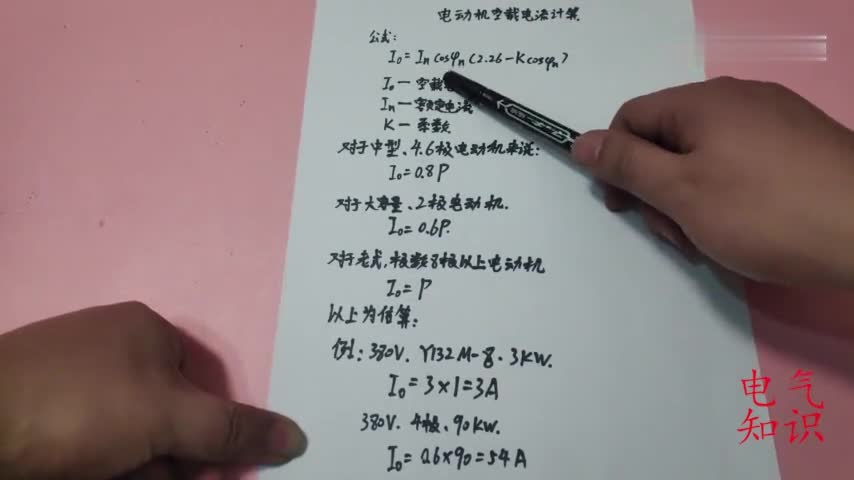 电动机空载电流计算
公式:
I₀= Iₙ cosφₙ (2.26-Kcosφₙ)
I₀ — 空载
Iₙ — 额定电流
K — 系数
对于中型、4.6极电动机来说:
I₀=0.8P
对于大容量、2极电动机.
I₀=0.6P.
对于老式,极数8极以上电动机
I₀=P
以上为估算:
例:380V. Y132M-8.3KW.
I₀=3×1=3A
380V. 4极、90KW.
I₀=0.6×90=54A
电气
知识